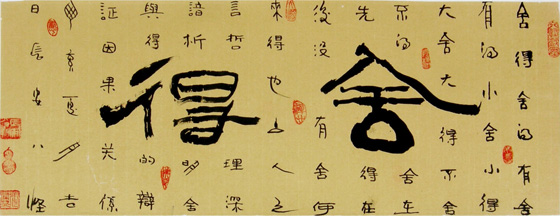 舍得
舍得舍得有舍
有得小舍小得
大舍大得不舍
不得舍在
先得在
後沒有舍何
來得也人之
言哲理深
析明舍
與得的辯
証因果关係
亥夏月吉
日長安八怪